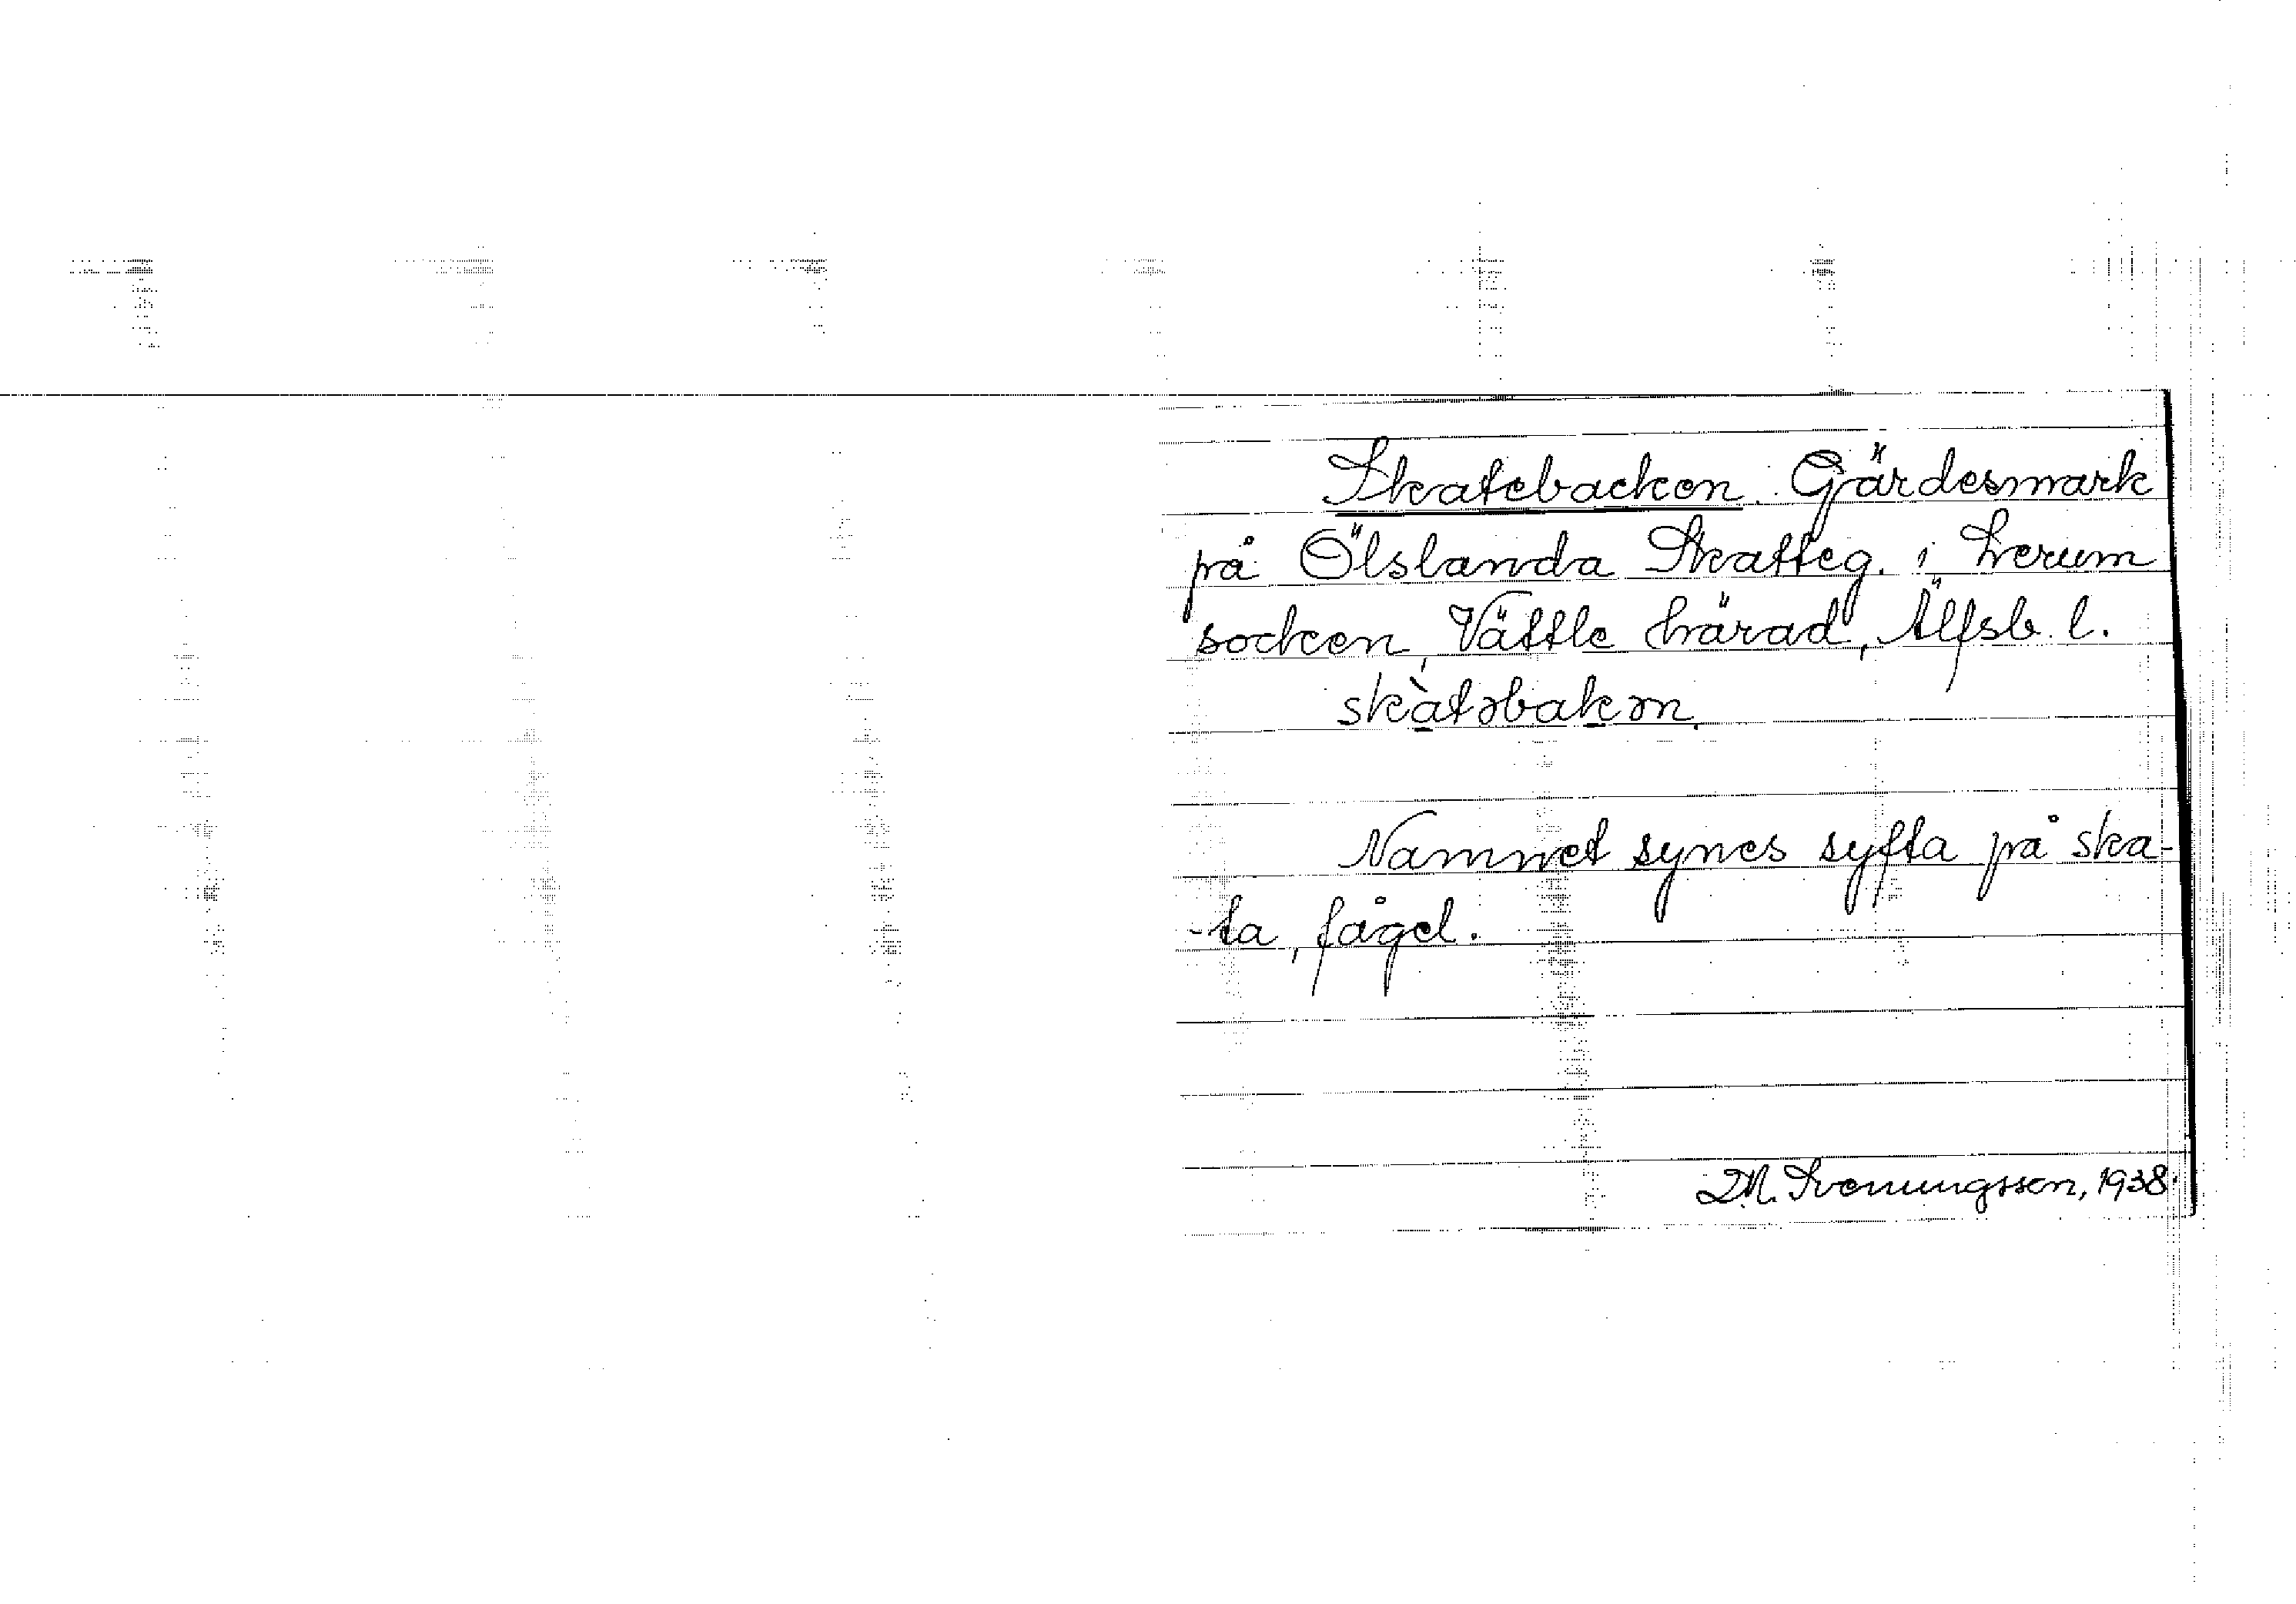 Skatebacken. Gärdesmark
på Ölslanda Skatteg. i Lerum
socken, Vättle härad, Älfsb. l.
skàtəbakən.
Namnet synes syfta på ska-
-ta, fågel.
D.N. Svenungsson, 1938.